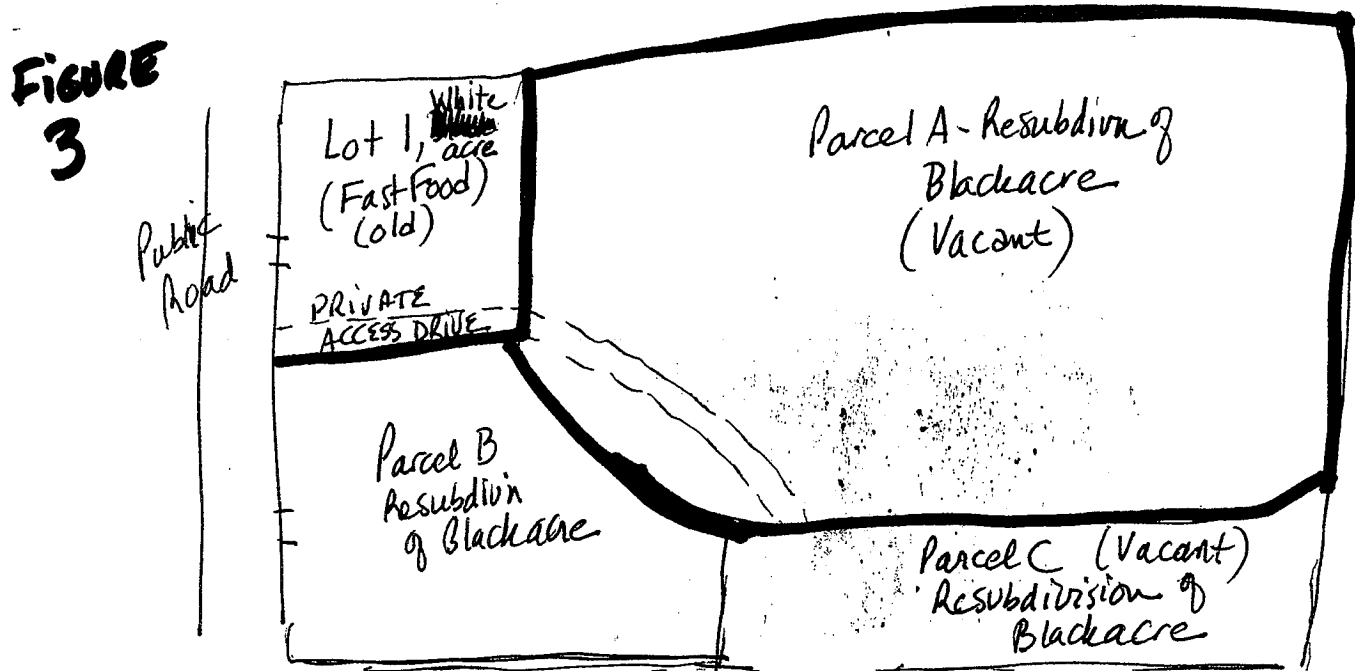 FIGURE
3
Public
Road
Lot 1, White
acre
(Fast Food)
(old)
PRIVATE
ACCESS DRIVE
Parcel A - Resubdivn of
Blackacre
(Vacant)
Parcel B
Resubdiv'n
of Blackacre
Parcel C (Vacant)
Resubdivision of
Blackacre